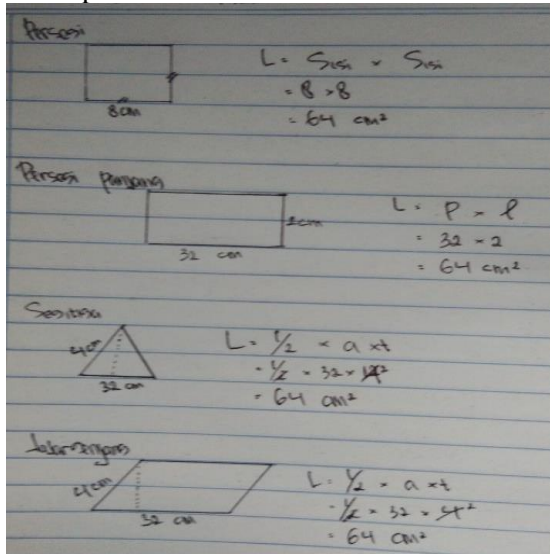 Persegi
8 cm
L = Sisi × Sisi
= 8 × 8
= 64 cm²
Persegi panjang
2 cm
32 cm
L = P × l
= 32 × 2
= 64 cm²
Segitiga
4 cm
32 cm
L = 1/2 × a × t
= 1/2 × 32 × 4 2
= 64 cm²
Jajargenjang
4 cm
32 cm
L = 1/2 × a × t
= 1/2 × 32 × 4 2
= 64 cm²